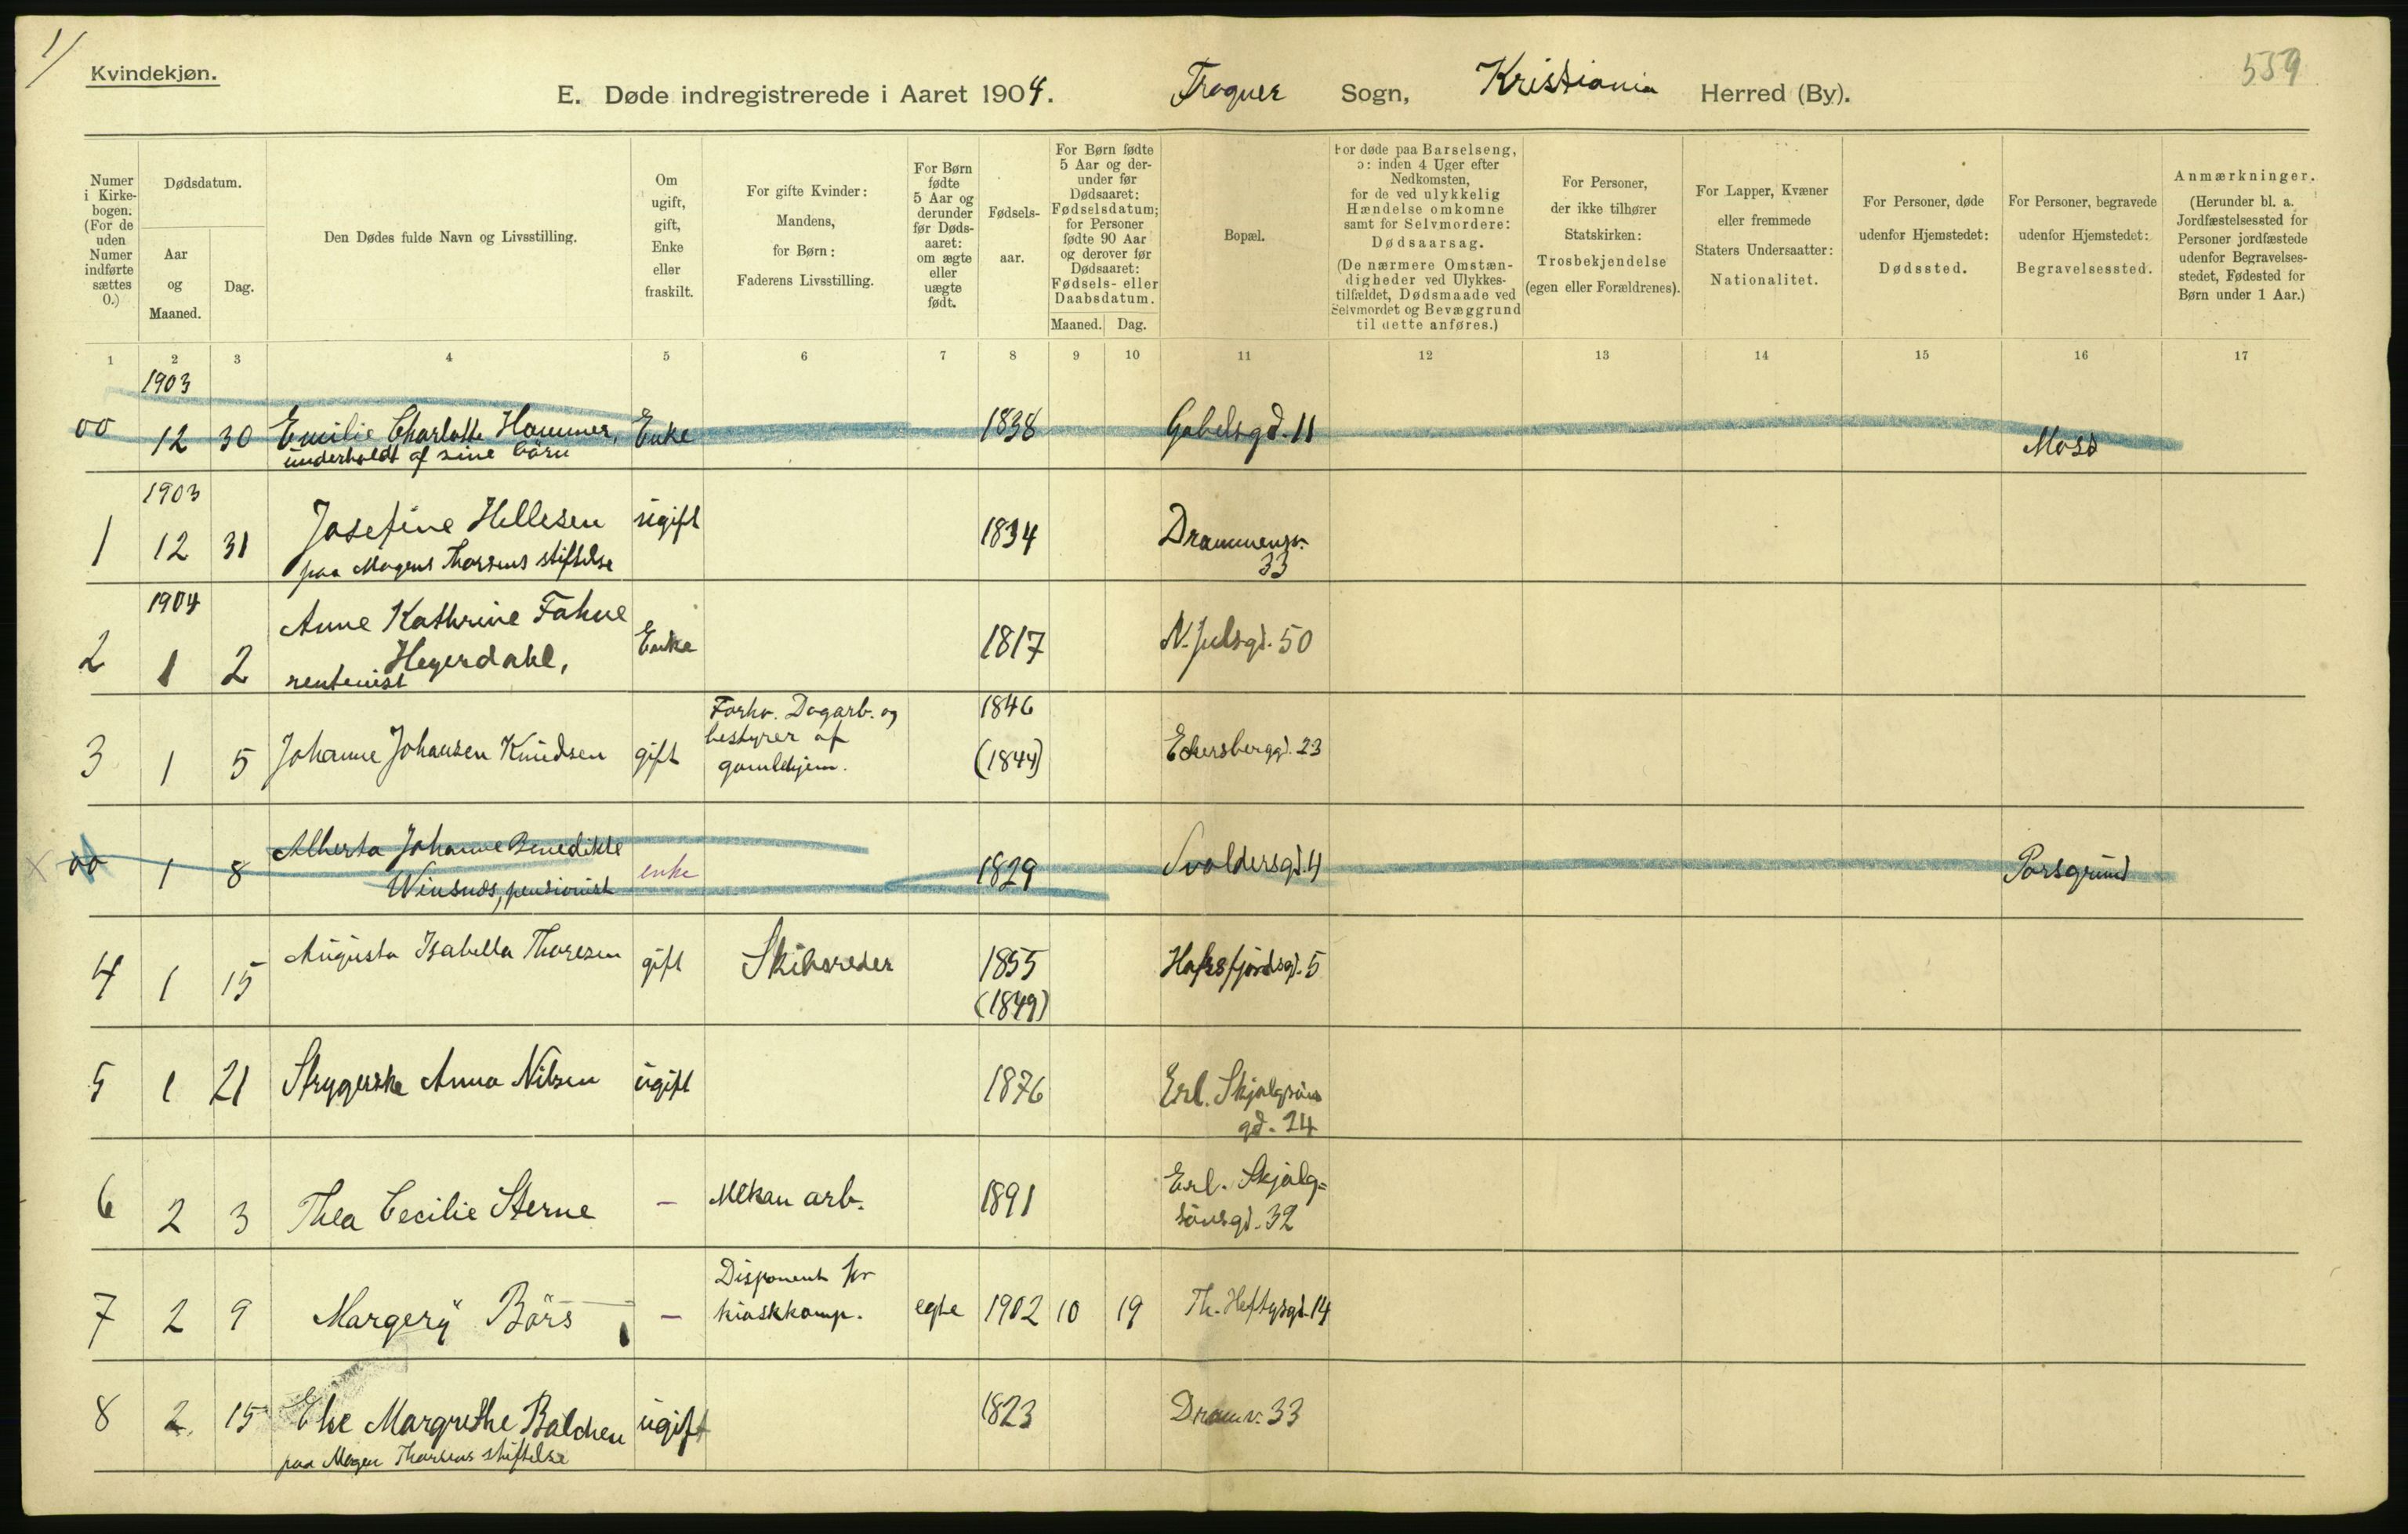 1/
Kvindekjøn.
559
E. Døde indregistrerede i Aaret 1904. Frogner Sogn, Kristiania Herred (By).
Numer i Kirkebogen. (For de uden Numer indførte sættes 0.)
Dødsdatum.
Aar og Maaned.
Dag.
Den Dødes fulde Navn og Livsstilling.
Om ugift, gift, Enke eller fraskilt.
For gifte Kvinder: Mandens, for Børn: Faderens Livsstilling.
For Børn fødte 5 Aar og derunder før Dødsaaret: om ægte eller uægte født.
Fødselsaar.
For Børn fødte 5 Aar og derunder før Dødsaaret: Fødselsdatum; for Personer fødte 90 Aar og derover før Dødsaaret: Fødsels- eller Daabsdatum.
Maaned. Dag.
Bopæl.
For døde paa Barselseng, ɔ: inden 4 Uger efter Nedkomsten, for de ved ulykkelig Hændelse omkomne samt for Selvmordere: Dødsaarsag. (De nærmere Omstændigheder ved Ulykkestilfældet, Dødsmaade ved Selvmordet og Bevæggrund til dette anføres.)
For Personer, der ikke tilhører Statskirken: Trosbekjendelse (egen eller Forældrenes).
For Lapper, Kvæner eller fremmede Staters Undersaatter: Nationalitet.
For Personer, døde udenfor Hjemstedet: Dødssted.
For Personer, begravede udenfor Hjemstedet: Begravelsessted.
Anmærkninger. (Herunder bl. a. Jordfæstelsessted for Personer jordfæstede udenfor Begravelsesstedet, Fødested for Børn under 1 Aar.)
1 2 3 4 5 6 7 8 9 10 11 12 13 14 15 16 17
1903
00 12 30 Emilie Charlotte Hammer, Enke 1838 Gabelsgd. 11 Moss
underholdt af sine börn
1903
1 12 31 Josefine Hellesen ugift 1834 Drammensv. 33
paa Mogens Thorsens stiftelse
1904
2 1 2 Anne Kathrine Fahne Enke 1817 N. Julsgd. 50
Heyerdahl,
rentenist
3 1 5 Johanne Johansen Knudsen gift Forhv. Dagarb. og 1846 Eckersbergd. 23
bestyrer af
gamlehjem. (1844)
x 00 1 8 Alberta Johanne Benedikte enke 1829 Svoldersgd. 4 Porsgrund
Winsnæs, pensionist
4 1 15 Augusta Isabella Thoresen gift Skibsreder 1855 Hafrsfjordsgd. 5
(1849)
5 1 21 Strygerske Anna Nilsen ugift 1876 Erl. Skjalgsöns
gd. 24
6 2 3 Thea Cecilie Sterne - Mekan arb. 1891 Erl. Skjalg=
sönsgd. 32
7 2 9 Margery Börs - Disponent for
kioskkomp. egte 1902 10 19 Th. Heftysgd. 14
8 2 15 Else Margrethe Balchen ugift 1823 Dramv. 33
paa Mogen Thorsens stiftelse